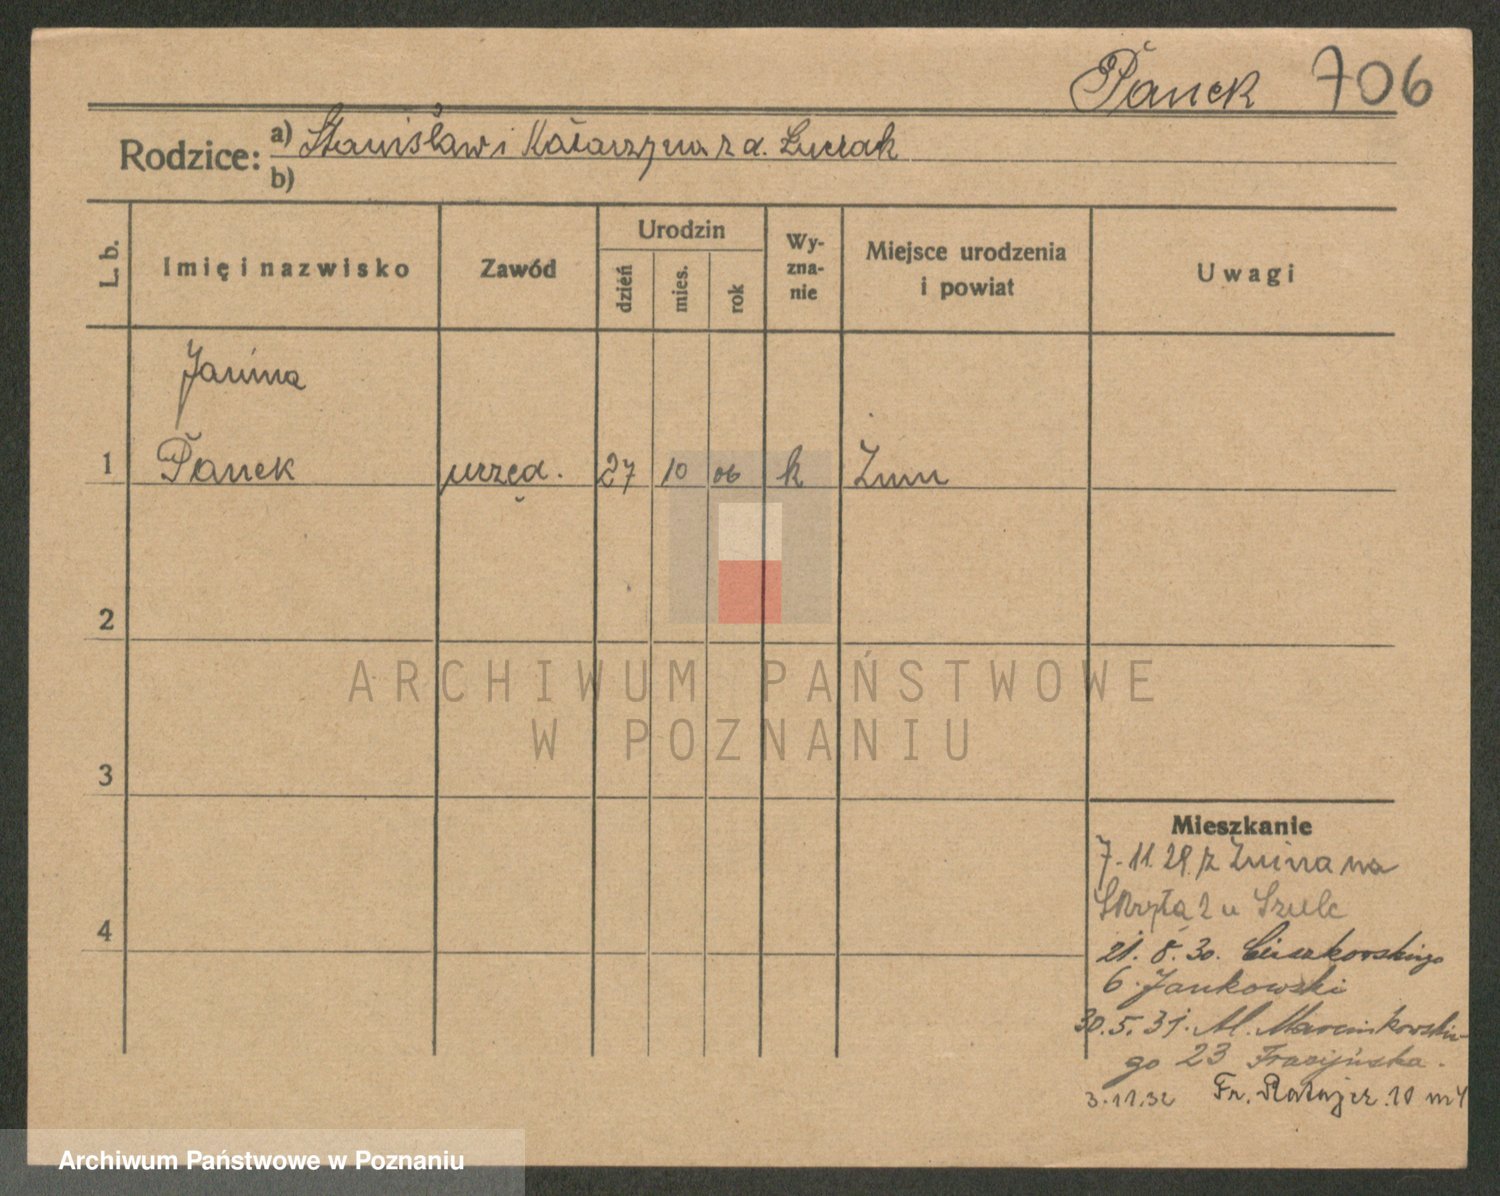 Panek 706
Rodzice: a) Stanisław i Katarzyna z d. Luczak
b)
L. b.
Imię i nazwisko
Zawód
Urodzin
dzień
mies.
rok
Wy-
zna-
nie
Miejsce urodzenia
i powiat
Uwagi
Janina
1 Panek urzęd. 27 10 06 k Żnin
2
3
4
ARCHIWUM PAŃSTWOWE
W POZNANIU
Mieszkanie
7.11.29. z Żnina na
Skrytą 2 u Szulc
21.8.30. Cieszkowskiego
6 Jankowski
30.5.31. Al. Marcinkowskie-
go 23
3.11.32 Fr. Ratajcz. 10 m 4
Archiwum Państwowe w Poznaniu